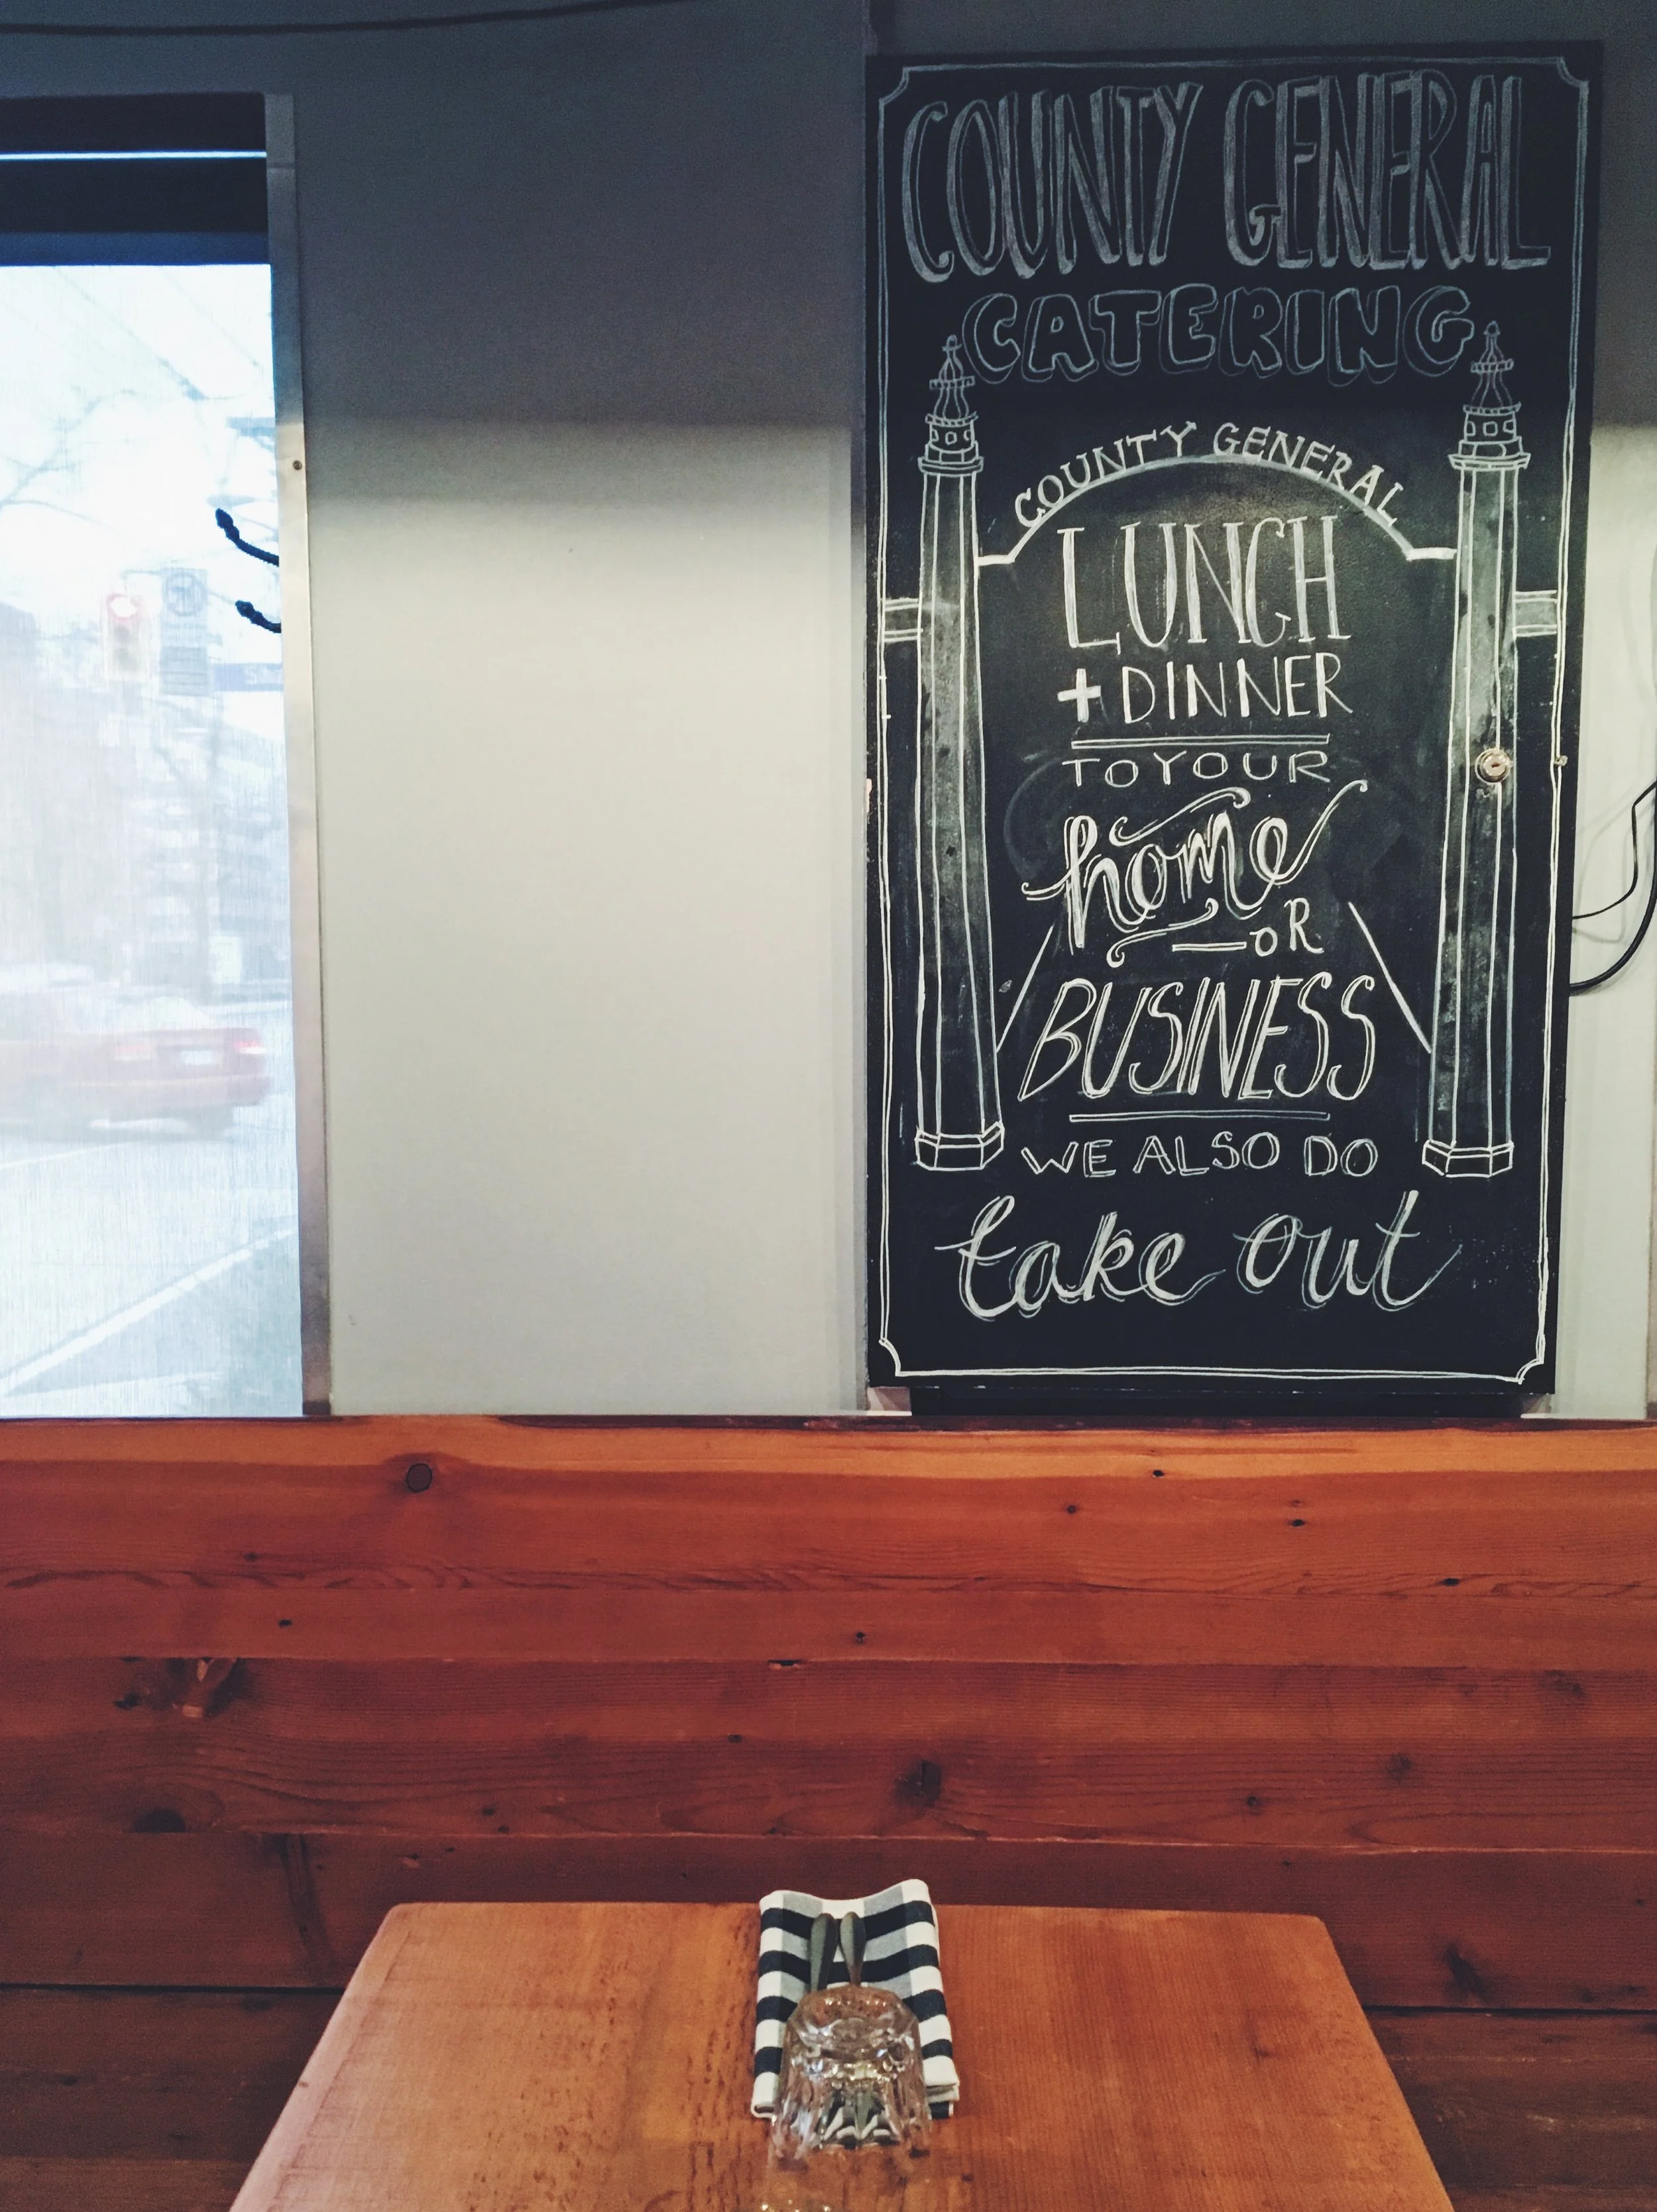 COUNTY GENERAL
CATERING
COUNTY GENERAL
LUNCH
+ DINNER
TO YOUR
home
— OR
BUSINESS
WE ALSO DO
take out